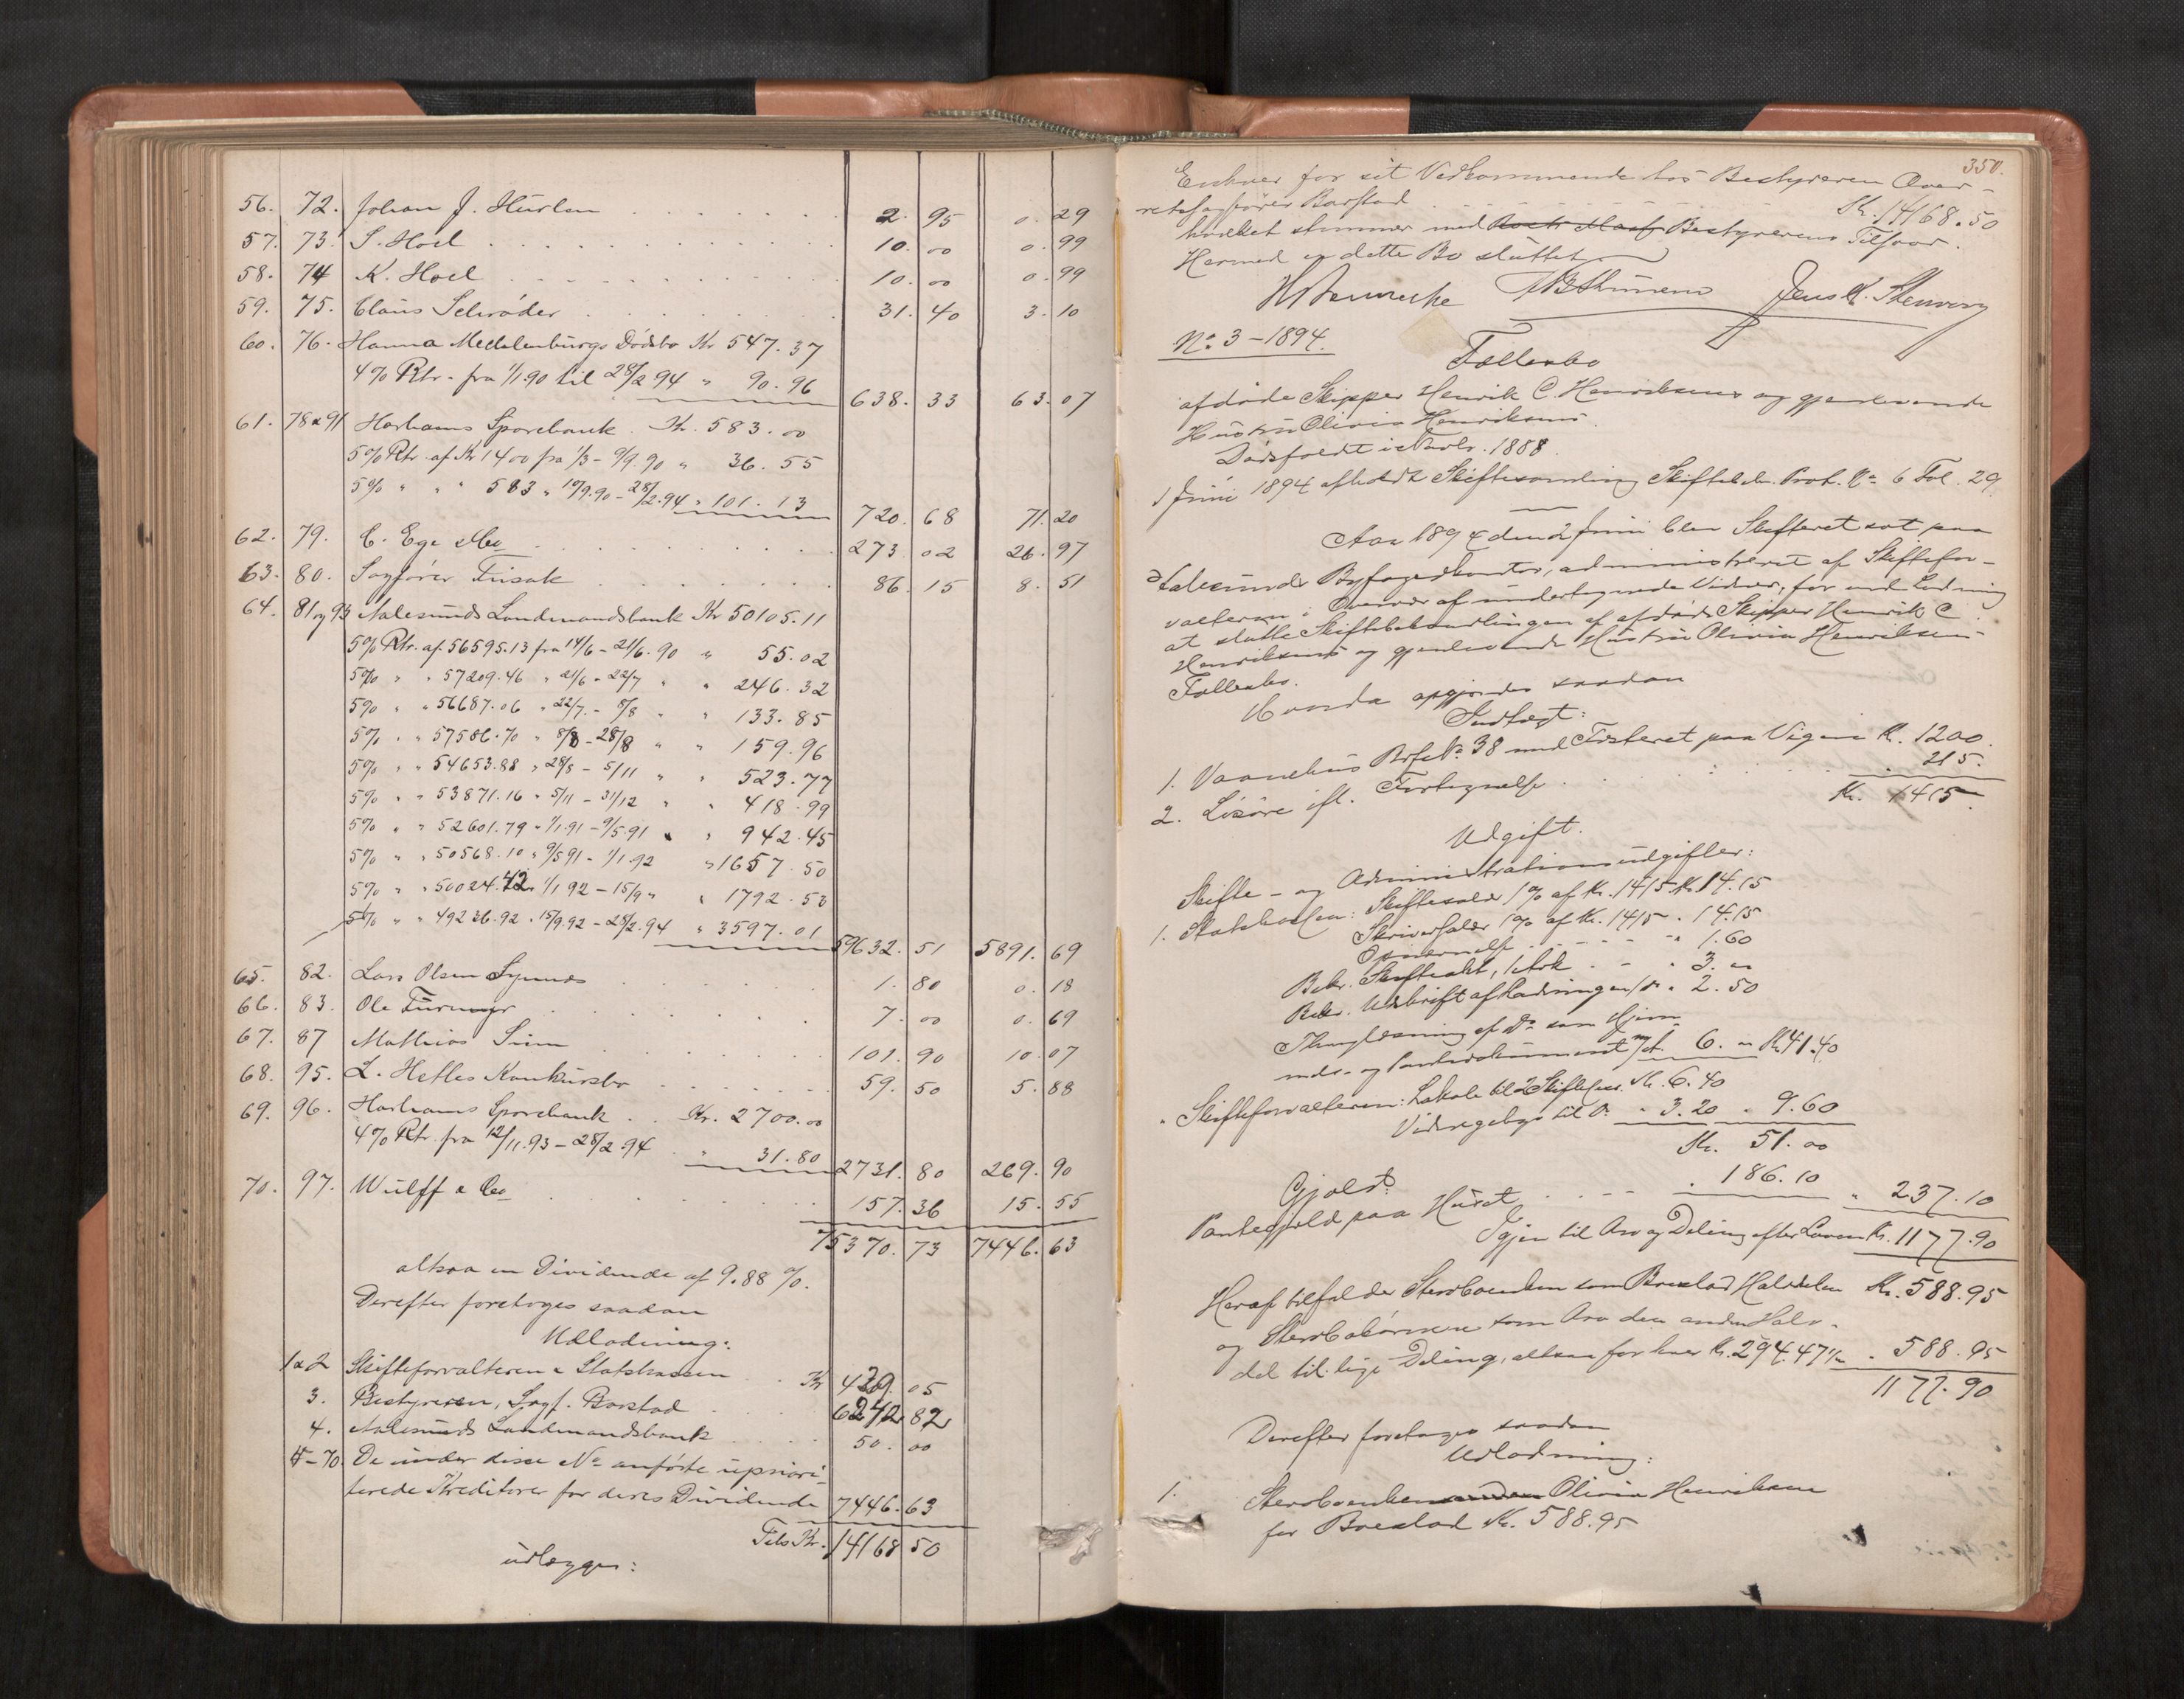 56. 72. Johan J. Hurlen . . . . . . . 2. 95 0. 29
57. 73. S. Hoel . . . . . . . . . 10. 00 0. 99
58. 74 K. Hoel . . . . . . . . . 10. 00 0. 99
59. 75. Claus Schrøder . . . . . . . 31. 40 3. 10
60. 76. Hanna Mechlenburgs Dødsbo Kr 547. 37
4% Rtr. fra 1/1.90 til 28/2 94 " 90. 96 638. 33 63. 07
61. 78 & 91 Harhams Sparebank . Kr. 583. 00
5% Rtr. af Kr 1400 fra 1/3 - 9/9.90 " 36. 55
5% " " " 583 " 10/9.90 - 28/2.94 " 101. 13 720. 68 71. 20
62. 79. C. Ege & Co . . . . . . . 273. 02 26. 97
63. 80. Sagfører Friisak . . . . . . 86. 15 8. 51
64. 81 og 93 Aalesunds Landmandsbank Kr 50105.11
5% Rtr. af 56595.13 fra 14/6 - 21/6. 90 " 55. 02
5% " " 57209.46 " 21/6 - 22/7 " " 246. 32
5% " " 56687.06 " 22/7 - 8/8 " " 133. 85
5% " " 57586.70 " 8/8 - 28/8 " " 159. 96
5% " " 54653.88 " 28/8 - 5/11 " " 523. 77
5% " " 53871.16 " 5/11 - 31/12 " " 418. 99
5% " " 52601.79 " 1/1.91 - 9/5.91 " " 942. 45
5% " " 50568.10 " 9/5 91 - 1/1.92 " 1657. 50
5% " " 50024.42 " 1/1 92 - 15/9 " " 1792. 53
5% " " 49236.92 " 15/9.92 - 28/2.94 " 3597. 01 59632. 51 5891. 69
65. 82. Lars Olsen Synnes . . . . . . 1. 80 0. 18
66. 83. Ole . . . . . . . 7. 00 0. 69
67. 87 Mathias . . . . . . . 101. 90 10. 07
68. 95. L. Hetles Konkursbo . . . . . . 59. 50 5. 88
69. 96. Harhams Sparebank . . Kr. 2700. 00
4% Rtr. fra 12/11.93 - 28/2.94 " 31. 80 2731. 80 269. 90
70. 97. Wulff & Co . . . . . . . 157. 36 15. 55
75370. 73 7446. 63
altsaa en Dividende af 9.88 %.
Derefter foretoges saadan
Udlodning:
1 & 2 Skifteforvalteren & Statskassen . . Kr 429. 05
3. Bestyreren, Sagf. Barstad . . . 6242 82
4. Aalesunds Landmandsbank . . . 50. 00
5-70. De under disse No anførte upriori-
terede Kreditorer for deres Dividende 7446. 63
Tils Kr. 14168 50
udlægges:
350.
Enhver for sit Vedkommende hos Bestyreren Over-
retssagfører Barstad . . . . . . . Kr. 14168.50
hvilket stemmer med Bestyrerens Tilsvar.
Hermed er dette Bo sluttet.
Jens K. Stenvong
No 3 - 1894.
Fællesbo
afdøde Skipper Henrik C. Henriksens og gjenlevende
Hustru Olivia Henriksens.
Dødsfaldt i Novbr. 1888.
1 Juni 1894 afholdt Skiftesamling Skiftebeh. Prot. No 6 Fol. 29.
Aar 1894 den 2 Juni blev Skifteret sat paa
Aalesunds Byfogedkontor, administreret af Skiftefor-
valteren i Overvær af undertegnede Vidner, for ved Ladning
at slutte Skiftebehandlingen af afdøde Skipper Henrik C.
Henriksens og gjenlevende Hustru Olivia Henriksens
Fællesbo.
Boets opgjøres saadan
Indtægt:
1. Vaanehus Brfc. No. 38 med Festeret paa Vigene Kr. 1200.
2. Løsøre ifl. Fortegnelse . . . . . . . " 215.
Kr. 1415.
Udgift.
Skifte- og Administrationsudgifter:
1. Statskassen: Skiftesalær 1% af Kr. 1415 Kr. 14.15
Skriversalær 1% af Kr. 1415 " 14.15
. . . . . " 1.60
Bekr. Skifteakt, 1 Ark . . . " 3. "
Bekr. Udskrift af Ladningen 1 Do " 2.50
Thinglæsning af Do som Hjem-
mels- og Pantedokument m/At. 6. " Kr. 41.40
" Skifteforvalteren: Lokale til 2 Skiftess. Kr. 6.40
Vidnegebyr til Do " 3.20 " 9.60
Kr. 51.00
Gjæld:
Pantegjæld paa Huset . . . . . " 186.10 " 237.10
Igjen til Arv og Deling efter Loven Kr. 1177.90
Heraf tilfalder Stervboenken som Boeslod Halvdelen Kr. 588.95
og Stervbobørnene som Arv den anden Halv-
del til lige Deling, altsaa for hver Kr. 294.47½ " 588.95
1177.90
Derefter foretoges saadan
Udlodning:
1. Stervboenken Olivia Henriksen
for Boeslod Kr. 588.95